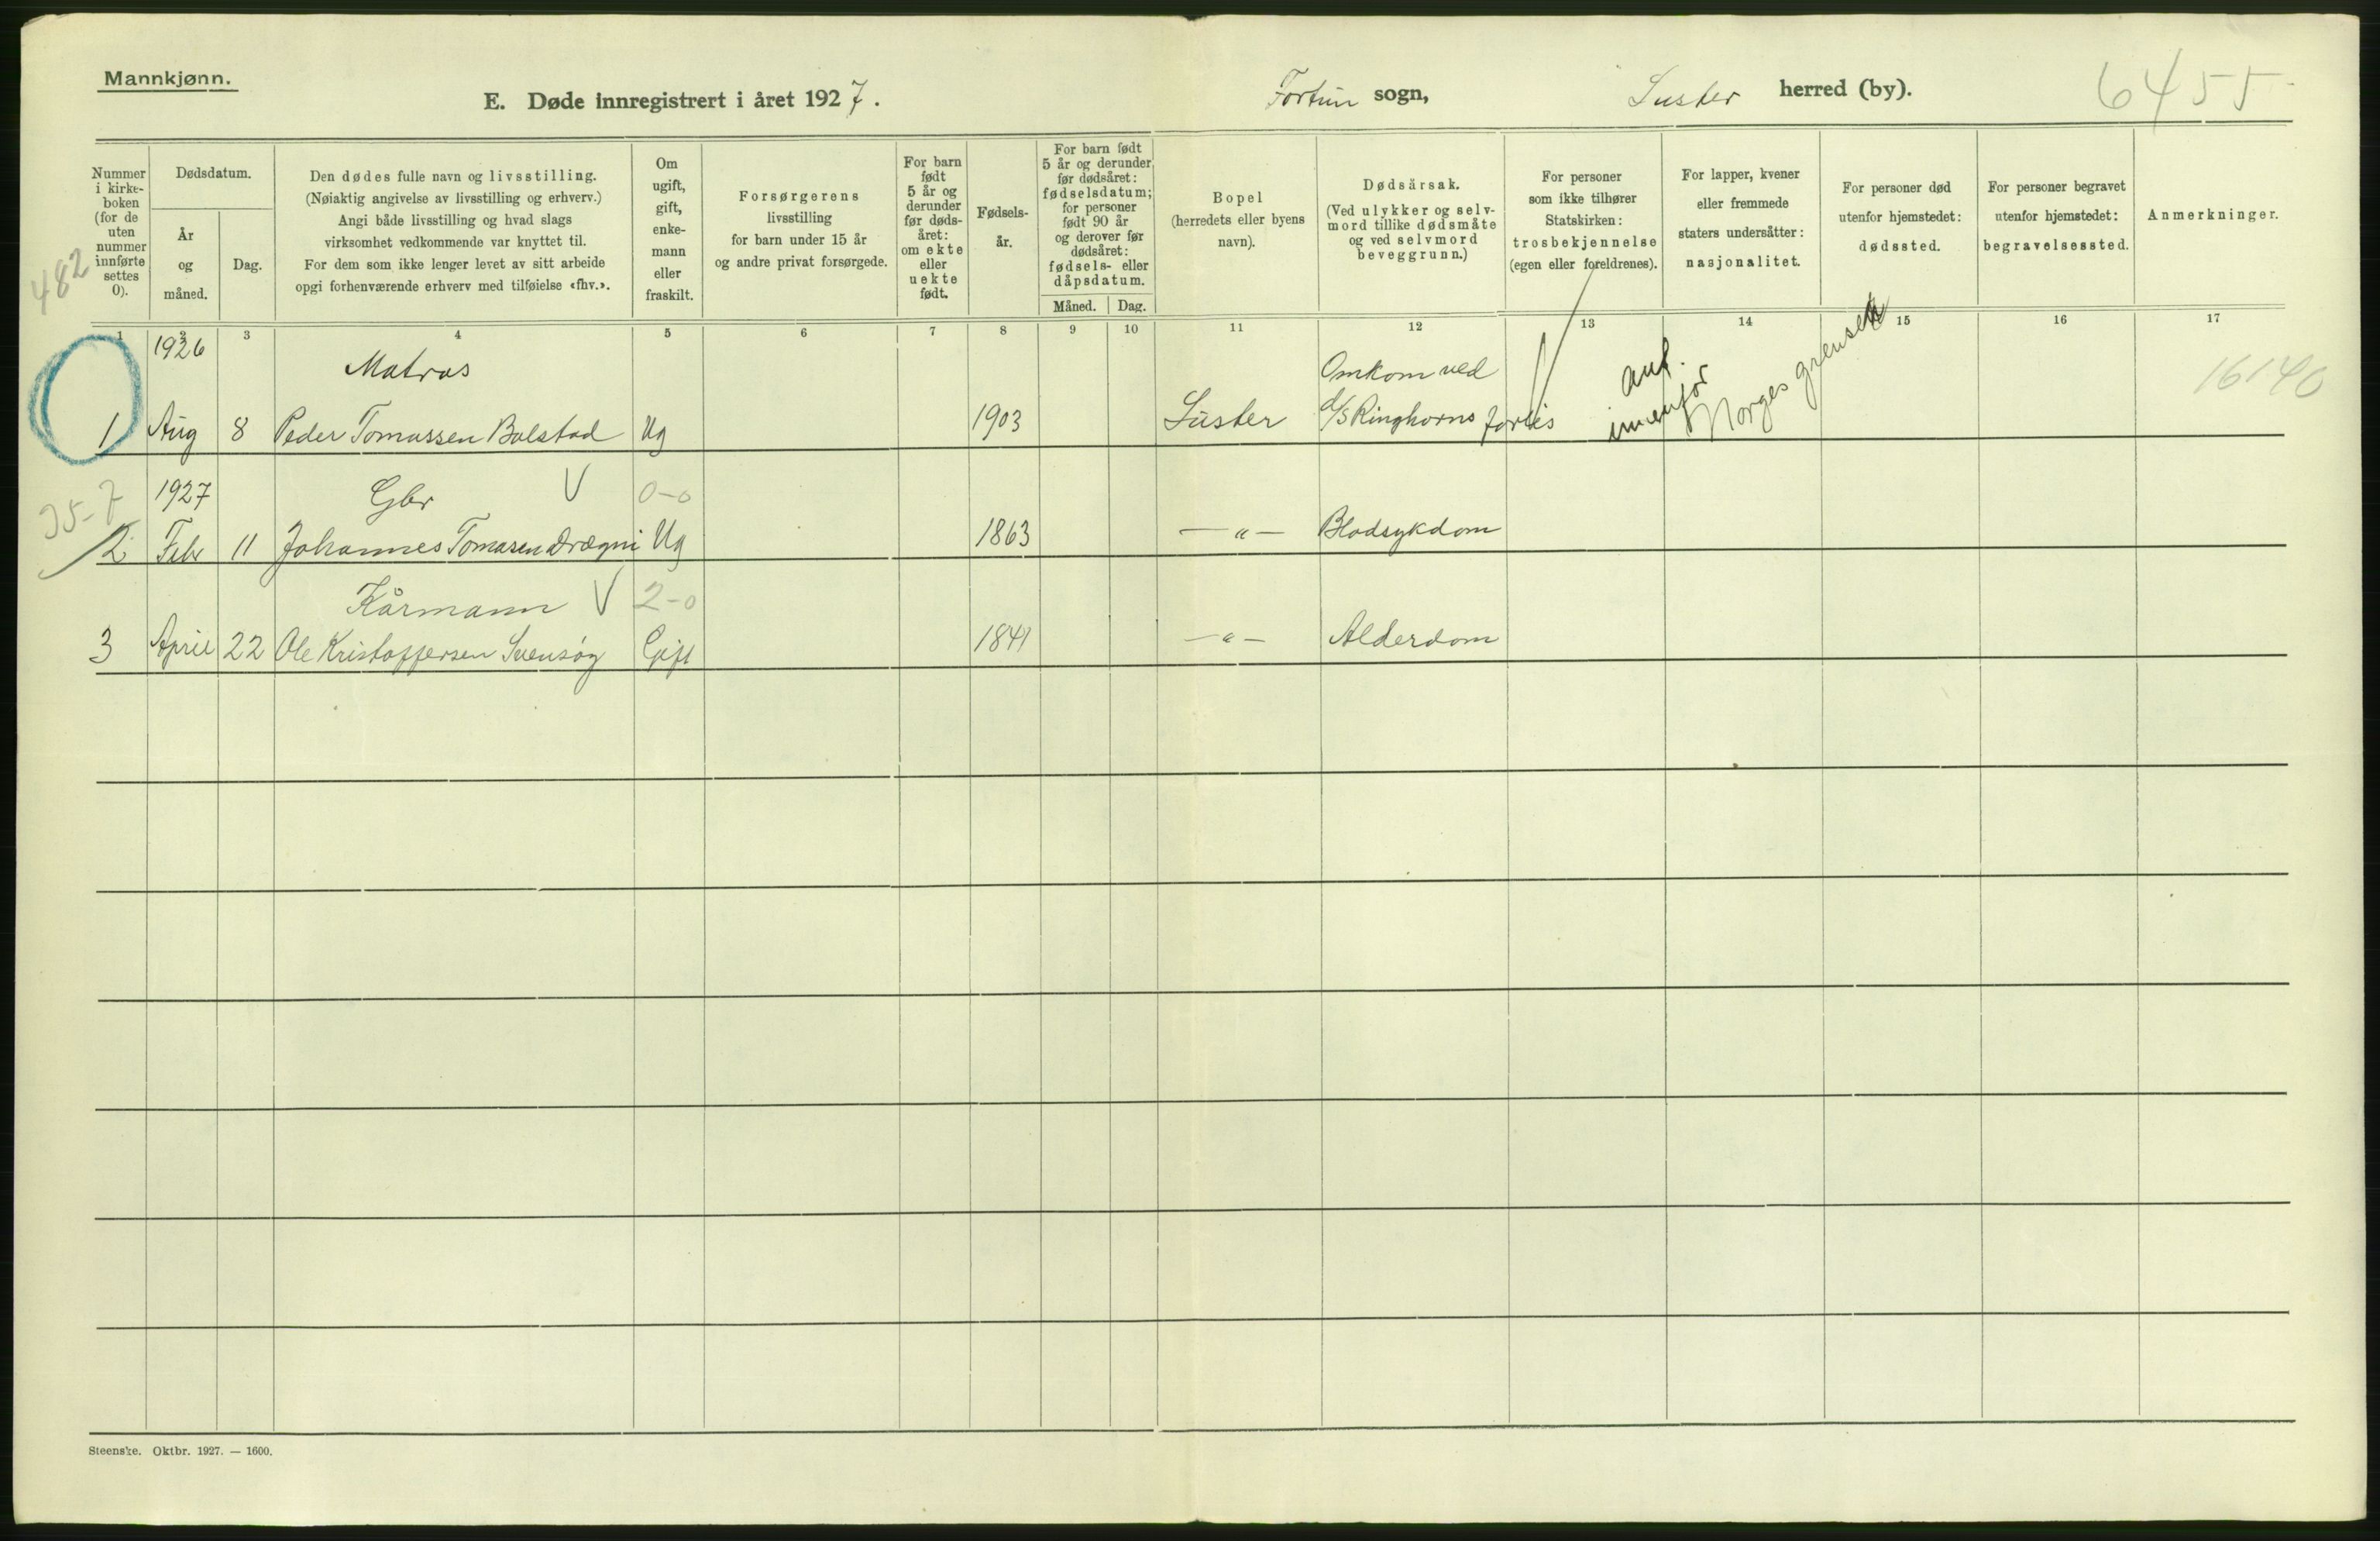 Mannkjønn.
E. Døde innregistrert i året 1927.
Fortun sogn,
Luster herred (by).
6455
482
Nummer
i kirke-
boken
(for de
uten
nummer
innførte
settes
0).
Dødsdatum.
År
og
måned.
Dag.
Den dødes fulle navn og livsstilling.
(Nøiaktig angivelse av livsstilling og erhverv.)
Angi både livsstilling og hvad slags
virksomhet vedkommende var knyttet til.
For dem som ikke lenger levet av sitt arbeide
opgi forhenværende erhverv med tilføielse «fhv.».
Om
ugift,
gift,
enke-
mann
eller
fraskilt.
Forsørgerens
livsstilling
for barn under 15 år
og andre privat forsørgede.
For barn
født
5 år og
derunder
før døds-
året:
om ekte
eller
uekte
født.
Fødsels-
år.
For barn født
5 år og derunder
før dødsåret:
fødselsdatum;
for personer
født 90 år
og derover før
dødsåret:
fødsels- eller
dåpsdatum.
Måned. Dag.
Bopel
(herredets eller byens
navn).
Dødsårsak.
(Ved ulykker og selv-
mord tillike dødsmåte
og ved selvmord
beveggrunn.)
For personer
som ikke tilhører
Statskirken:
trosbekjennelse
(egen eller foreldrenes).
For lapper, kvener
eller fremmede
staters undersåtter:
nasjonalitet.
For personer død
utenfor hjemstedet:
dødssted.
For personer begravet
utenfor hjemstedet:
begravelsessted.
Anmerkninger.
1 2 3 4 5 6 7 8 9 10 11 12 13 14 15 16 17
1926 Matros Omkom ved 16140
1 Aug 8 Peder Tomassen Bolstad Ug 1903 Luster d/s Ringhorns forlis
ant.
innenfor
Norges grenser
35-7
1927 Gbr V 0-0
2 Febr 11 Johannes Tomasen Drægni Ug 1863 — " — Blodsykdom
Kårmann V 2-0
3 April 22 Ole Kristoffersen Svensøy Gift 1841 — " — Alderdom
Steenske. Oktbr. 1927. — 1600.